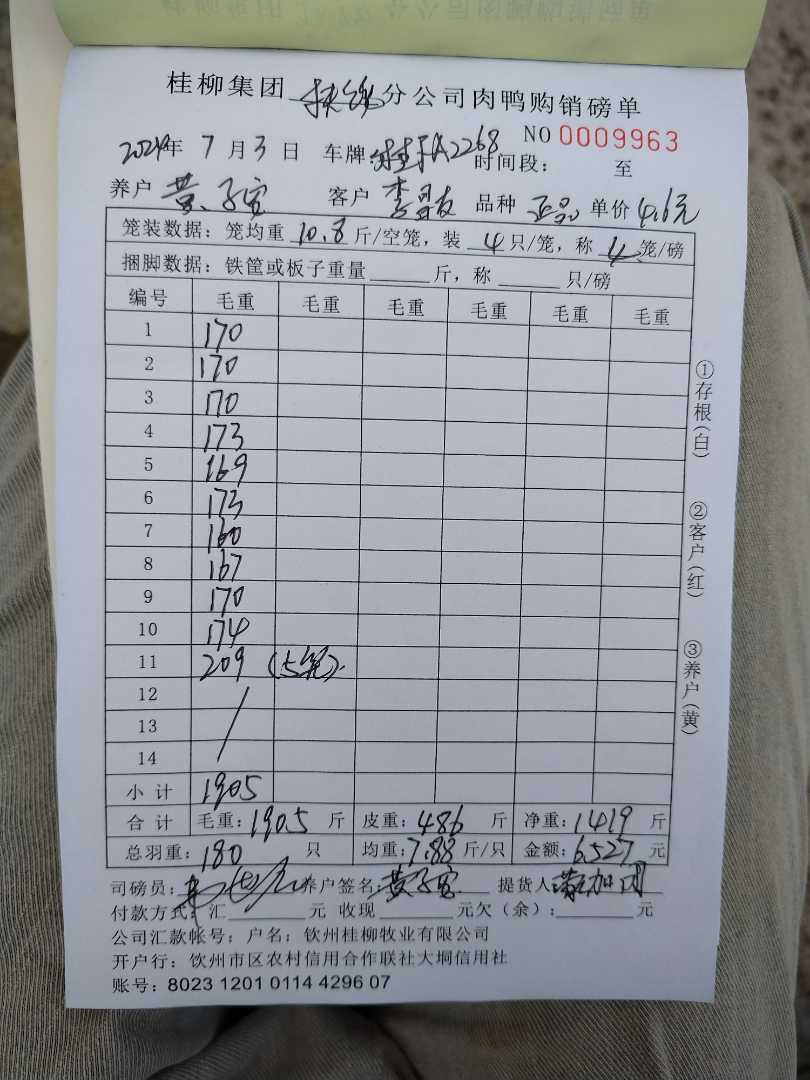 桂柳集团 扶绥 分公司肉鸭购销磅单
NO 0009963
2024年 7 月 3 日 车牌: 桂A2268 时间段: 至
养户 黄子宽 客户 李昌友 品种 正品 单价 4.6元
笼装数据: 笼均重 10.8 斤/空笼, 装 4 只/笼, 称 4 笼/磅
捆脚数据: 铁筐或板子重量 斤, 称 只/磅
编号 毛重 毛重 毛重 毛重 毛重 毛重
1 170
2 170
3 170
4 173
5 169
6 173
7 160
8 167
9 170
10 174
11 209 (5笼).
12
13
14
小计 1905
合计 毛重: 1905 斤 皮重: 486 斤 净重: 1419 斤
总羽重: 180 只 均重: 7.88 斤/只 金额: 6527 元
司磅员: 养户签名: 黄子宽 提货人:
付款方式: 汇 元 收现 元欠(余): 元
公司汇款帐号: 户名: 钦州桂柳牧业有限公司
开户行: 钦州市区农村信用合作联社大垌信用社
账号: 8023 1201 0114 4296 07
①存根(白)
②客户(红)
③养户(黄)